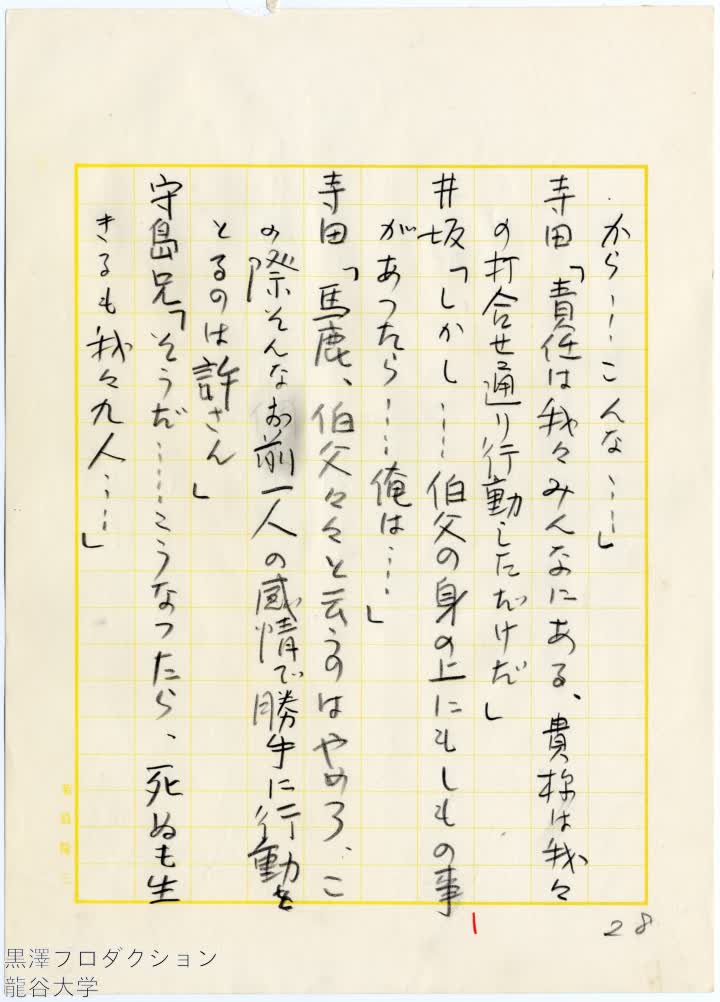 から……こんな……」
寺田「責任は我々みんなにある、貴様は我々
の打合せ通り行動しただけだ」
井坂「しかし……伯父の身の上にもしもの事
があつたら……俺は……」
寺田「馬鹿、伯父々々と云うのはやめろ、こ
の際そんなお前一人の感情で勝手に行動を
とるのは許さん」
守島兄「そうだ……こうなつたら、死ぬも生
きるも我々九人……」
28
黒澤フロダクション
龍谷大学